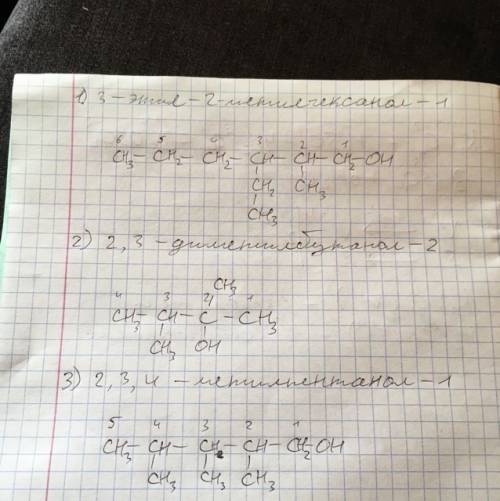 1) 3-этил-2-метилгексанол-1
6 5 4 3 2 1
CH3-CH2-CH2-CH-CH-CH2-OH
CH2 CH3
CH3
2) 2,3-диметилбутанол-2
CH3
4 3 2 1
CH3-CH-C-CH3
CH3 OH
3) 2,3,4-метилпентанол-1
5 4 3 2 1
CH3-CH-CH-CH-CH2OH
CH3 CH3 CH3